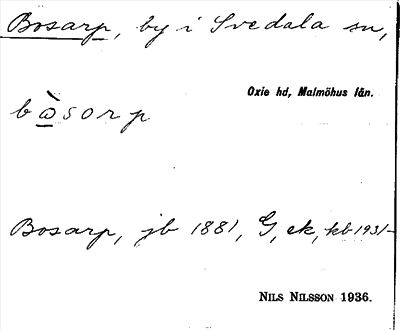 Bosarp, by i Svedala sn,
Oxie hd, Malmöhus län.
bὼ̲sorp
Bosarp, jb 1881, G, ek, kb 1931-
NILS NILSSON 1936.